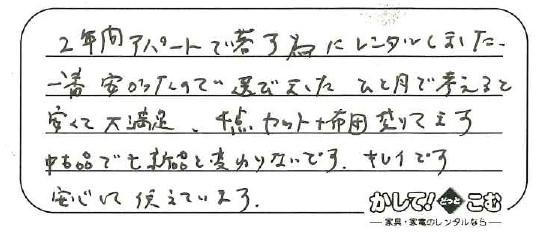 2年間アパートで暮す為にレンタルしました.
一番安かったので選びました ひと月で考えると
安くて大満足、4点セット+布団 借りてます
中古品でも新品と変わりないです. キレイです
安心して使えています.
かして!どっとこむ
家具・家電のレンタルなら